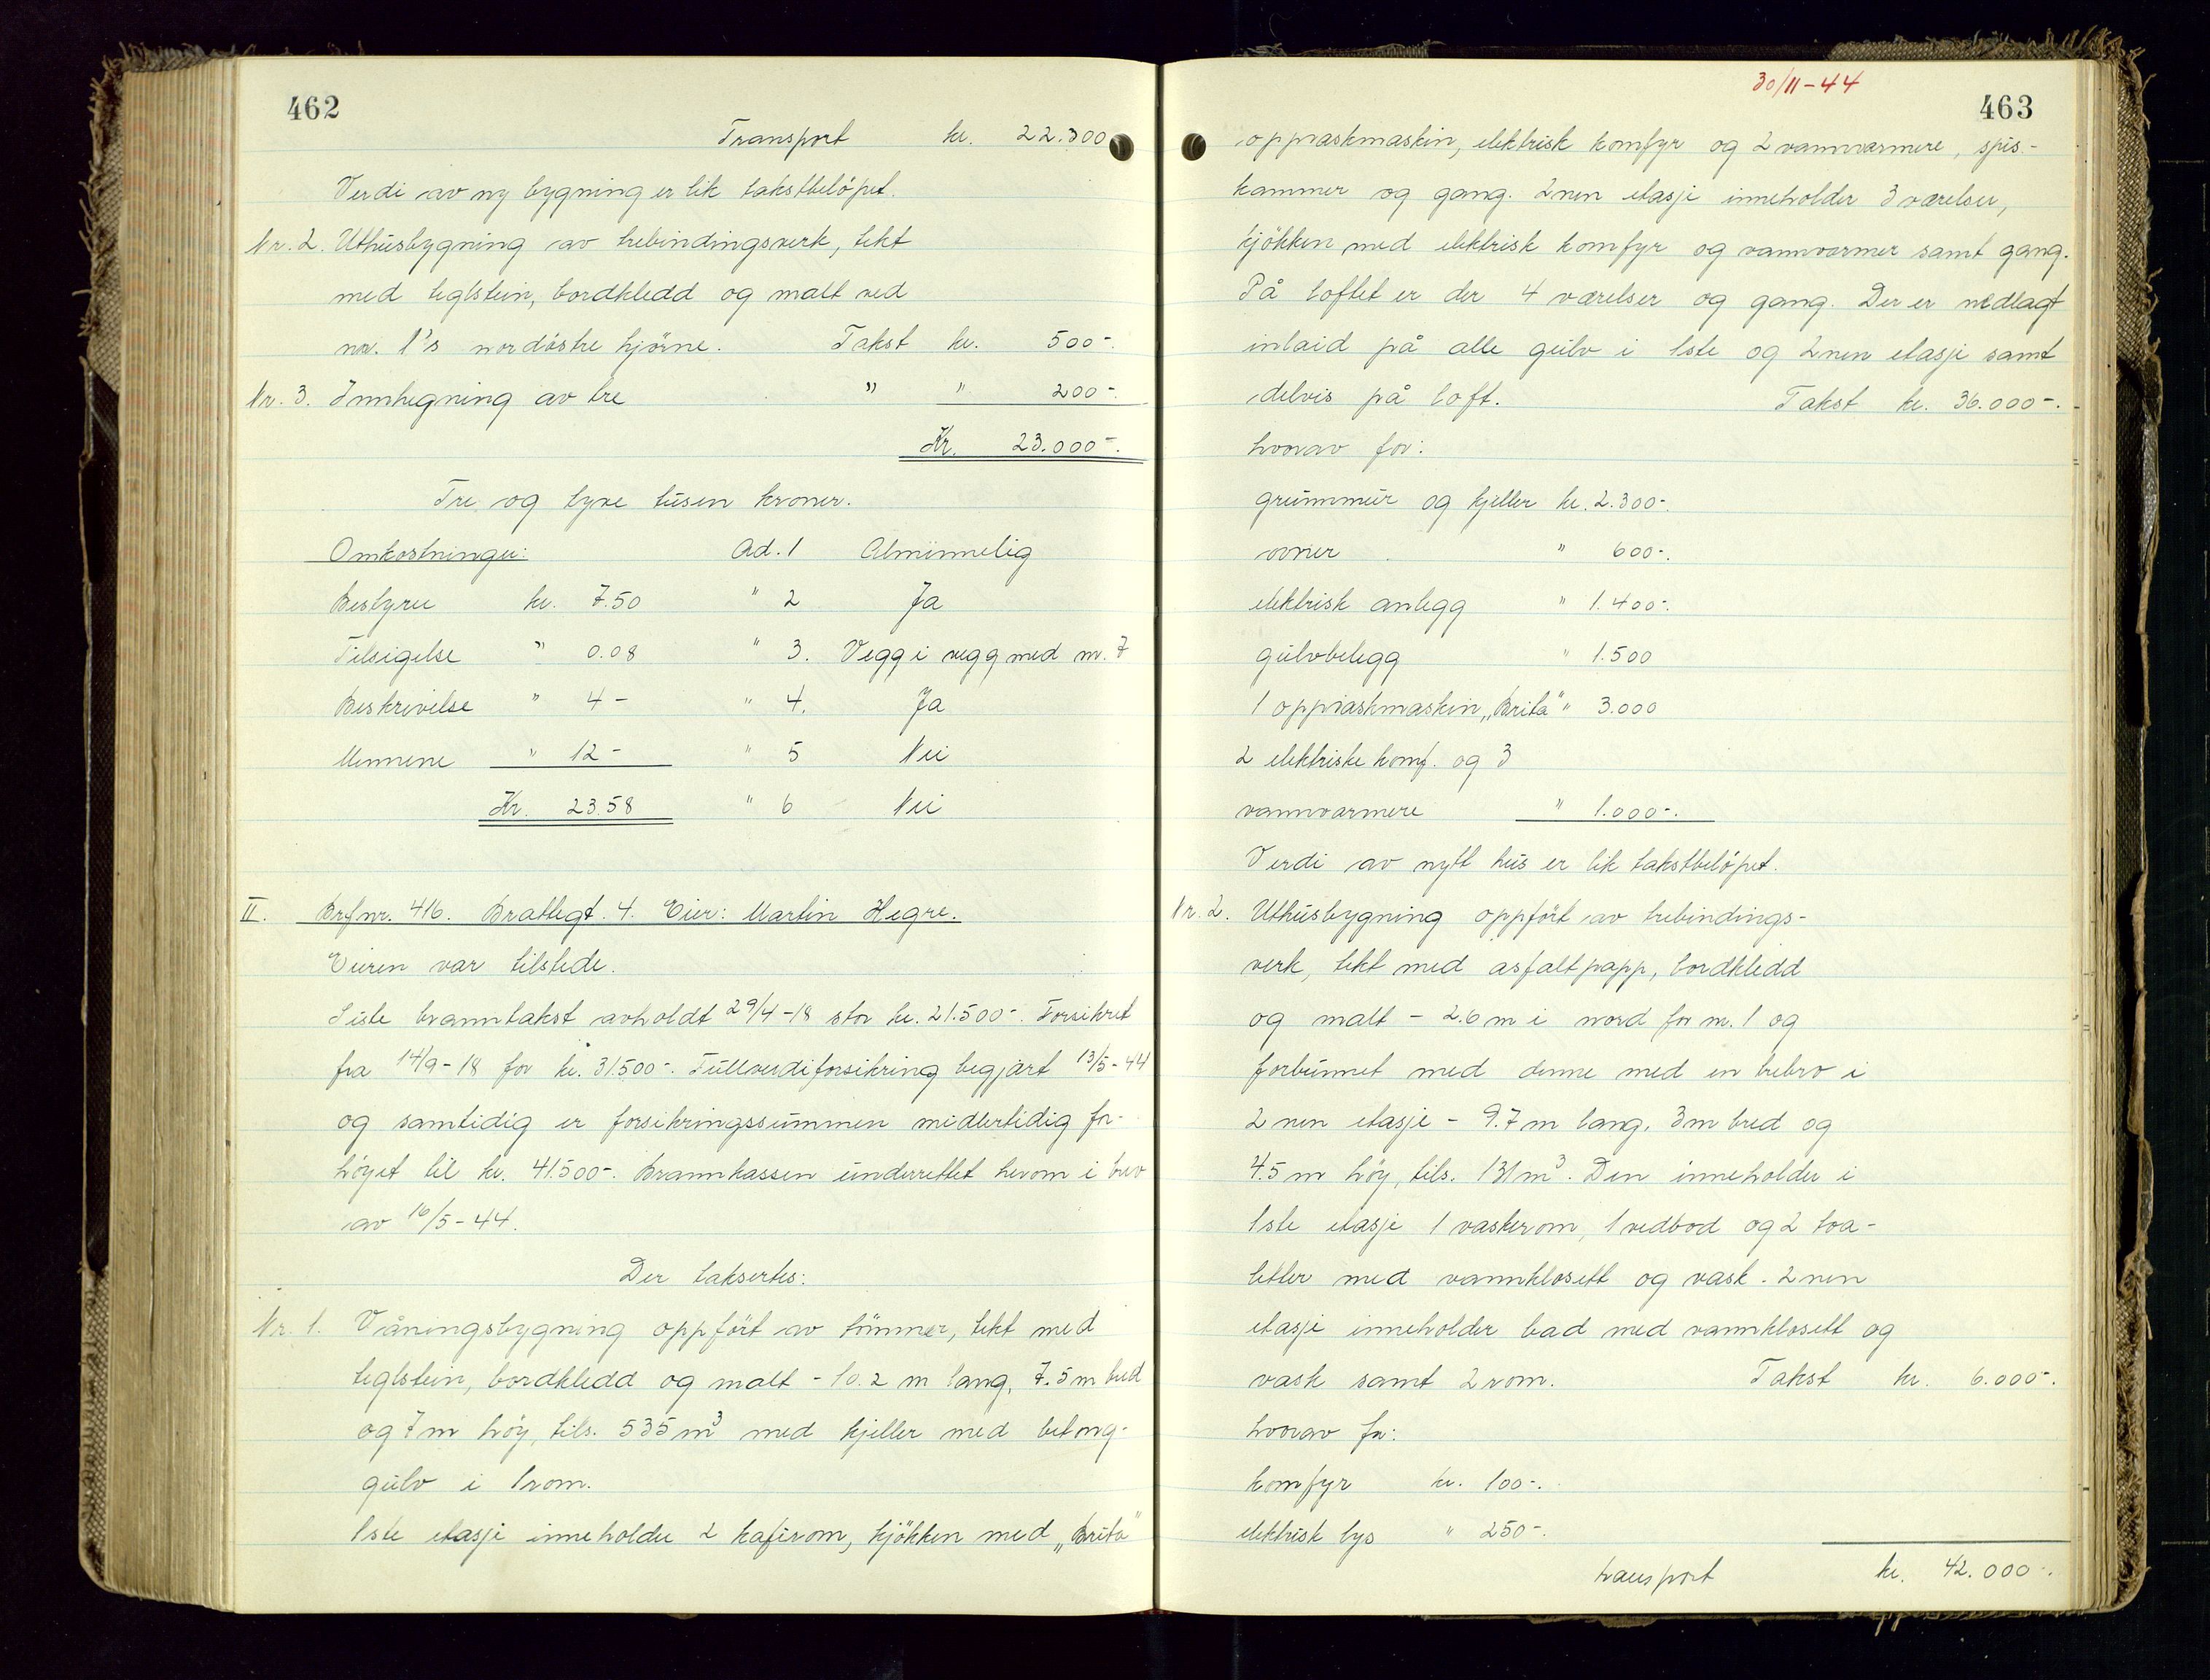 462
Transport kr. 22.300
Verdi av ny bygning er lik takstbeløpet.
Nr. 2. Uthusbygning av trebindingsverk, tekt
med teglstein, bordkledd og malt ved
nr. 1's nordöstre hjörne. Takst kr. 500-.
Nr. 3. Innhegning av tre " " 200-.
Kr. 23.000-.
Tre og tyve tusen kroner.
Omkostninger: Ad. 1 Alminnelig
Bestyrer kr. 7.50 " 2 Ja
Tilsigelse " 0.08 " 3. Vegg i vegg med nr. 7
Beskrivelse " 4- " 4. Ja
Mennene " 12- " 5 Nei
Kr. 23.58 " 6 Nei
II. Brf.nr. 416. Brattegt. 4. Eier: Martin Hegre.
Eieren var tilstede.
Siste branntakst avholdt 29/4-18 stor kr. 21.500-. Forsikret
fra 14/9-18 for kr. 31.500-. Fullverdiforsikring begjært 13/5-44
og samtidig er forsikringssummen midlertidig for-
höyet til kr. 41.500-. Brannkassen underrettet herom i brev
av 16/5-44.
Der taksertes:
Nr. 1. Våningsbygning oppfört av tömmer, tekt med
teglstein, bordkledd og malt - 10.2 m lang, 7.5 m bred
og 7 m höy, tils. 535 m³ med kjeller med betong-
gulv i 1 rom.
1ste etasje inneholder 2 kaférom, kjökken med „Brita"
30/11-44
463
oppvaskmaskin, elektrisk komfyr og 2 vannvarmere, spis-
kammer og gang. 2nen etasje inneholder 3 værelser,
kjökken med elektrisk komfyr og vannvarmer samt gang.
På loftet er der 4 værelser og gang. Der er nedlagt
inlaid på alle gulv i 1ste og 2nen etasje samt
delvis på loft. Takst kr. 36.000-.
hvorav for:
grunnmur og kjeller kr. 2.300-.
ovner " 600-.
elektrisk anlegg " 1.400-.
gulvbelegg " 1.500
1 oppvaskmaskin „Brita" " 3.000
2 elektriske komf. og 3
vannvarmere " 1.000-.
Verdi av nytt hus er lik takstbelöpet.
Nr. 2. Uthusbygning oppfört av trebindings-
verk, tekt med asfaltpapp, bordkledd
og malt - 2.6 m i nord for nr. 1 og
forbunnet med denne med en trebro i
2nen etasje - 9.7 m lang, 3 m bred og
4.5 m höy, tils. 131 m³. Den inneholder i
1ste etasje 1 vaskerom, 1 vedbod og 2 toa-
letter med vannklosett og vask. 2nen
etasje inneholder bad med vannklosett og
vask samt 2 rom. Takst kr. 6.000-.
hvorav for:
komfyr kr. 100-.
elektrisk lys " 250-.
transport kr. 42.000-.